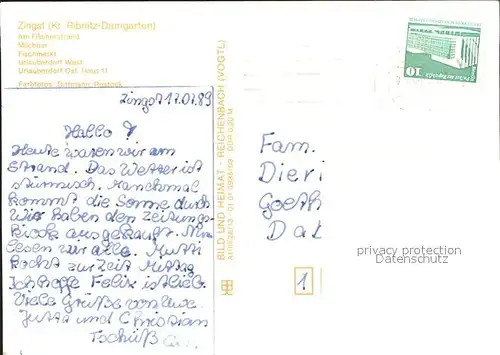 Zingst (Kr. Ribnitz-Damgarten)
Am Fischerstrand
Fischmarkt
Urlauberdorf West
Urlauberdorf Ost, Haus 11
Farbfotos: Dittmann, Rostock
Zingst 17.07.89
Hallo
Heute waren wir am
Strand. Das Wetter ist
stürmisch. Manchmal
kommt die Sonne durch
Wir haben den Zeitungs-
kiosk ausgekauft. Nun
lesen wir alle. Mutti
kocht zur Zeit Mittag
Ich hoffe Felix ist lieb.
Viele Grüße von Uwe
Jutta und Christian
Tschüß
BILD UND HEIMAT · REICHENBACH (VOGTL)
DDR 0,20 M
10
Fam.
Dieri
Goeth
Dat
privacy protection
Datenschutz
1